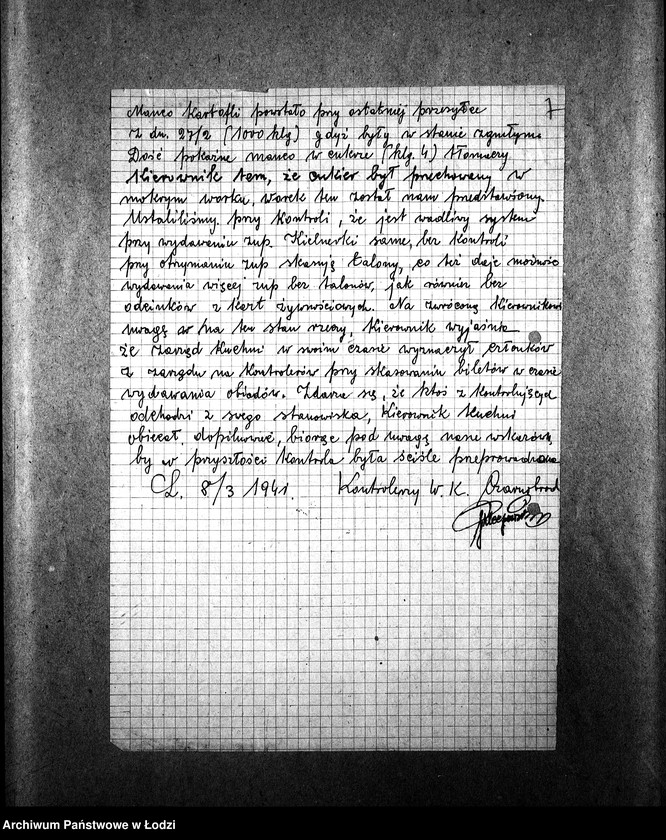 7
Manco kartofli powstało przy ostatniej przesyłce
z dn. 27/2 (1000 klg) gdyż były w stanie zgniłym.
Dość pokaźne manco w cukrze (klg. 4) tłomaczy
Kierownik tem, że cukier był przechowany w
mokrym worku, worek ten został nam przedstawiony.
Ustaliliśmy przy kontroli, że jest wadliwy system
przy wydawaniu zup. Kielnerki same, bez kontroli
przy otrzymaniu zup skasują talony, co też daje możność
wydawania więcej zup bez talonów, jak również bez
odcinków z kart żywnościowych. Na zwróconą Kierownikowi
uwagę na ten stan rzeczy, Kierownik wyjaśnia
że zarząd kuchni w swoim czasie wyznaczył członków
z zarządu na kontrolerów przy skasowaniu biletów w czasie
wydawania obiadów. Zdarza się, że ktoś z kontrolujących
odchodzi z swego stanowiska, Kierownik kuchni
obiecał, dopilnować, biorąc pod uwagę nasze wskazówki,
by w przyszłości kontrola była ściśle przeprowadzona
Ł. 8/3 1941. Kontrolerzy W. K.
Archiwum Państwowe w Łodzi